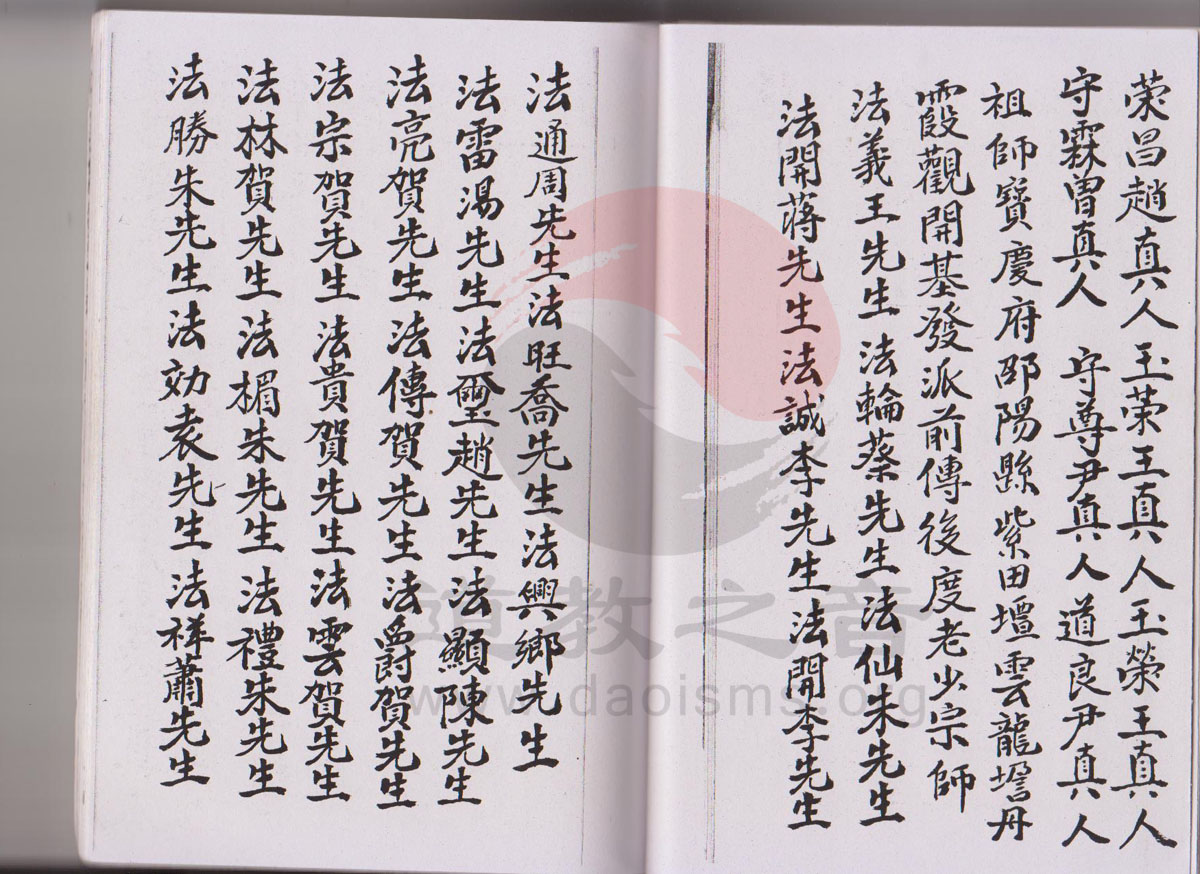 荣昌趙真人玉荣王真人玉榮王真人
守霖曾真人 守尊尹真人道良尹真人
祖師寶慶府邵陽縣紫田壇雲龍壋丹
霞觀開基發派前傳後度老少宗師
法義王先生法輪蔡先生法仙朱先生
法開蔣先生法誠李先生法開李先生
法通周先生法旺喬先生法興鄉先生
法雷湯先生法璽趙先生法顯陳先生
法亮賀先生法傳賀先生法爵賀先生
法宗賀先生法貴賀先生法雲賀先生
法林賀先生法楣朱先生法禮朱先生
法勝朱先生法効袁先生法祥蕭先生
道教之音
www.daoisms.org